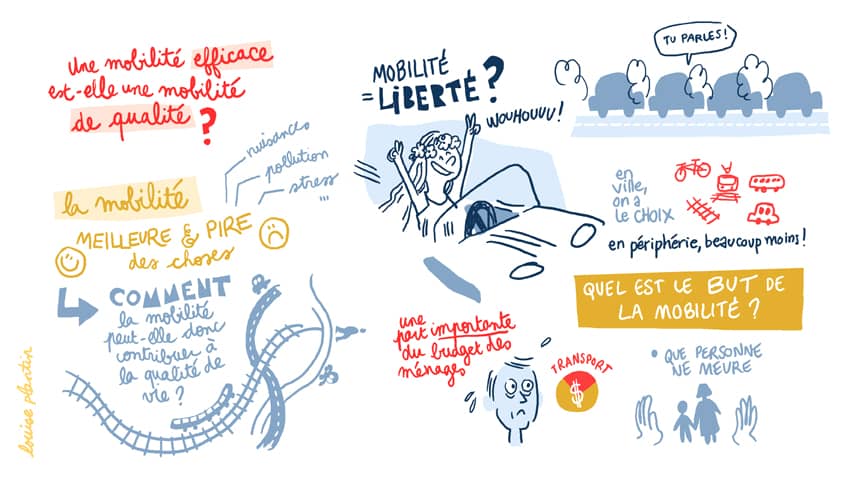 Une mobilité efficace
est-elle une mobilité
de qualité ?
nuisances
pollution
stress
...
la mobilité
MEILLEURE & PIRE
des choses
COMMENT
la mobilité
peut-elle donc
contribuer à
la qualité de
vie ?
louise plantin
MOBILITÉ
= LIBERTÉ ?
WOUHOUUU !
une
part importante
du budget des
ménages
TRANSPORT
$
TU PARLES !
en
ville,
on a
le CHOIX
en périphérie, beaucoup moins !
QUEL EST LE BUT DE
LA MOBILITÉ ?
• QUE PERSONNE
NE MEURE